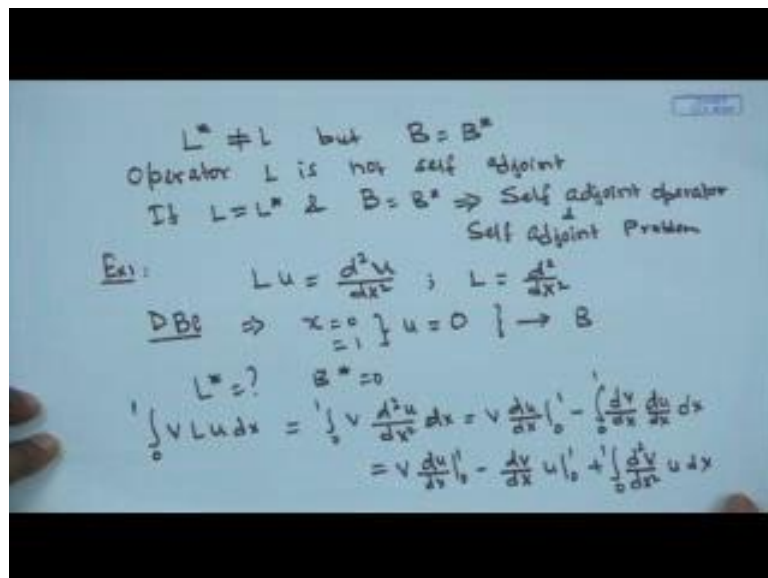 L* ≠ L but B = B*
Operator L is not self adjoint
If L = L* & B = B* ⇒ Self adjoint operator
& Self adjoint Problem
Ex1: Lu = d²u/dx² ; L = d²/dx²
DBC ⇒ x=0 =1 } u=0 } → B
L* = ? B* = 0
₀∫¹ v Lu dx = ₀∫¹ v d²u/dx² dx = v du/dx |₀¹ - ₀∫¹ dv/dx du/dx dx
= v du/dx |₀¹ - dv/dx u |₀¹ + ₀∫¹ d²v/dx² u dx